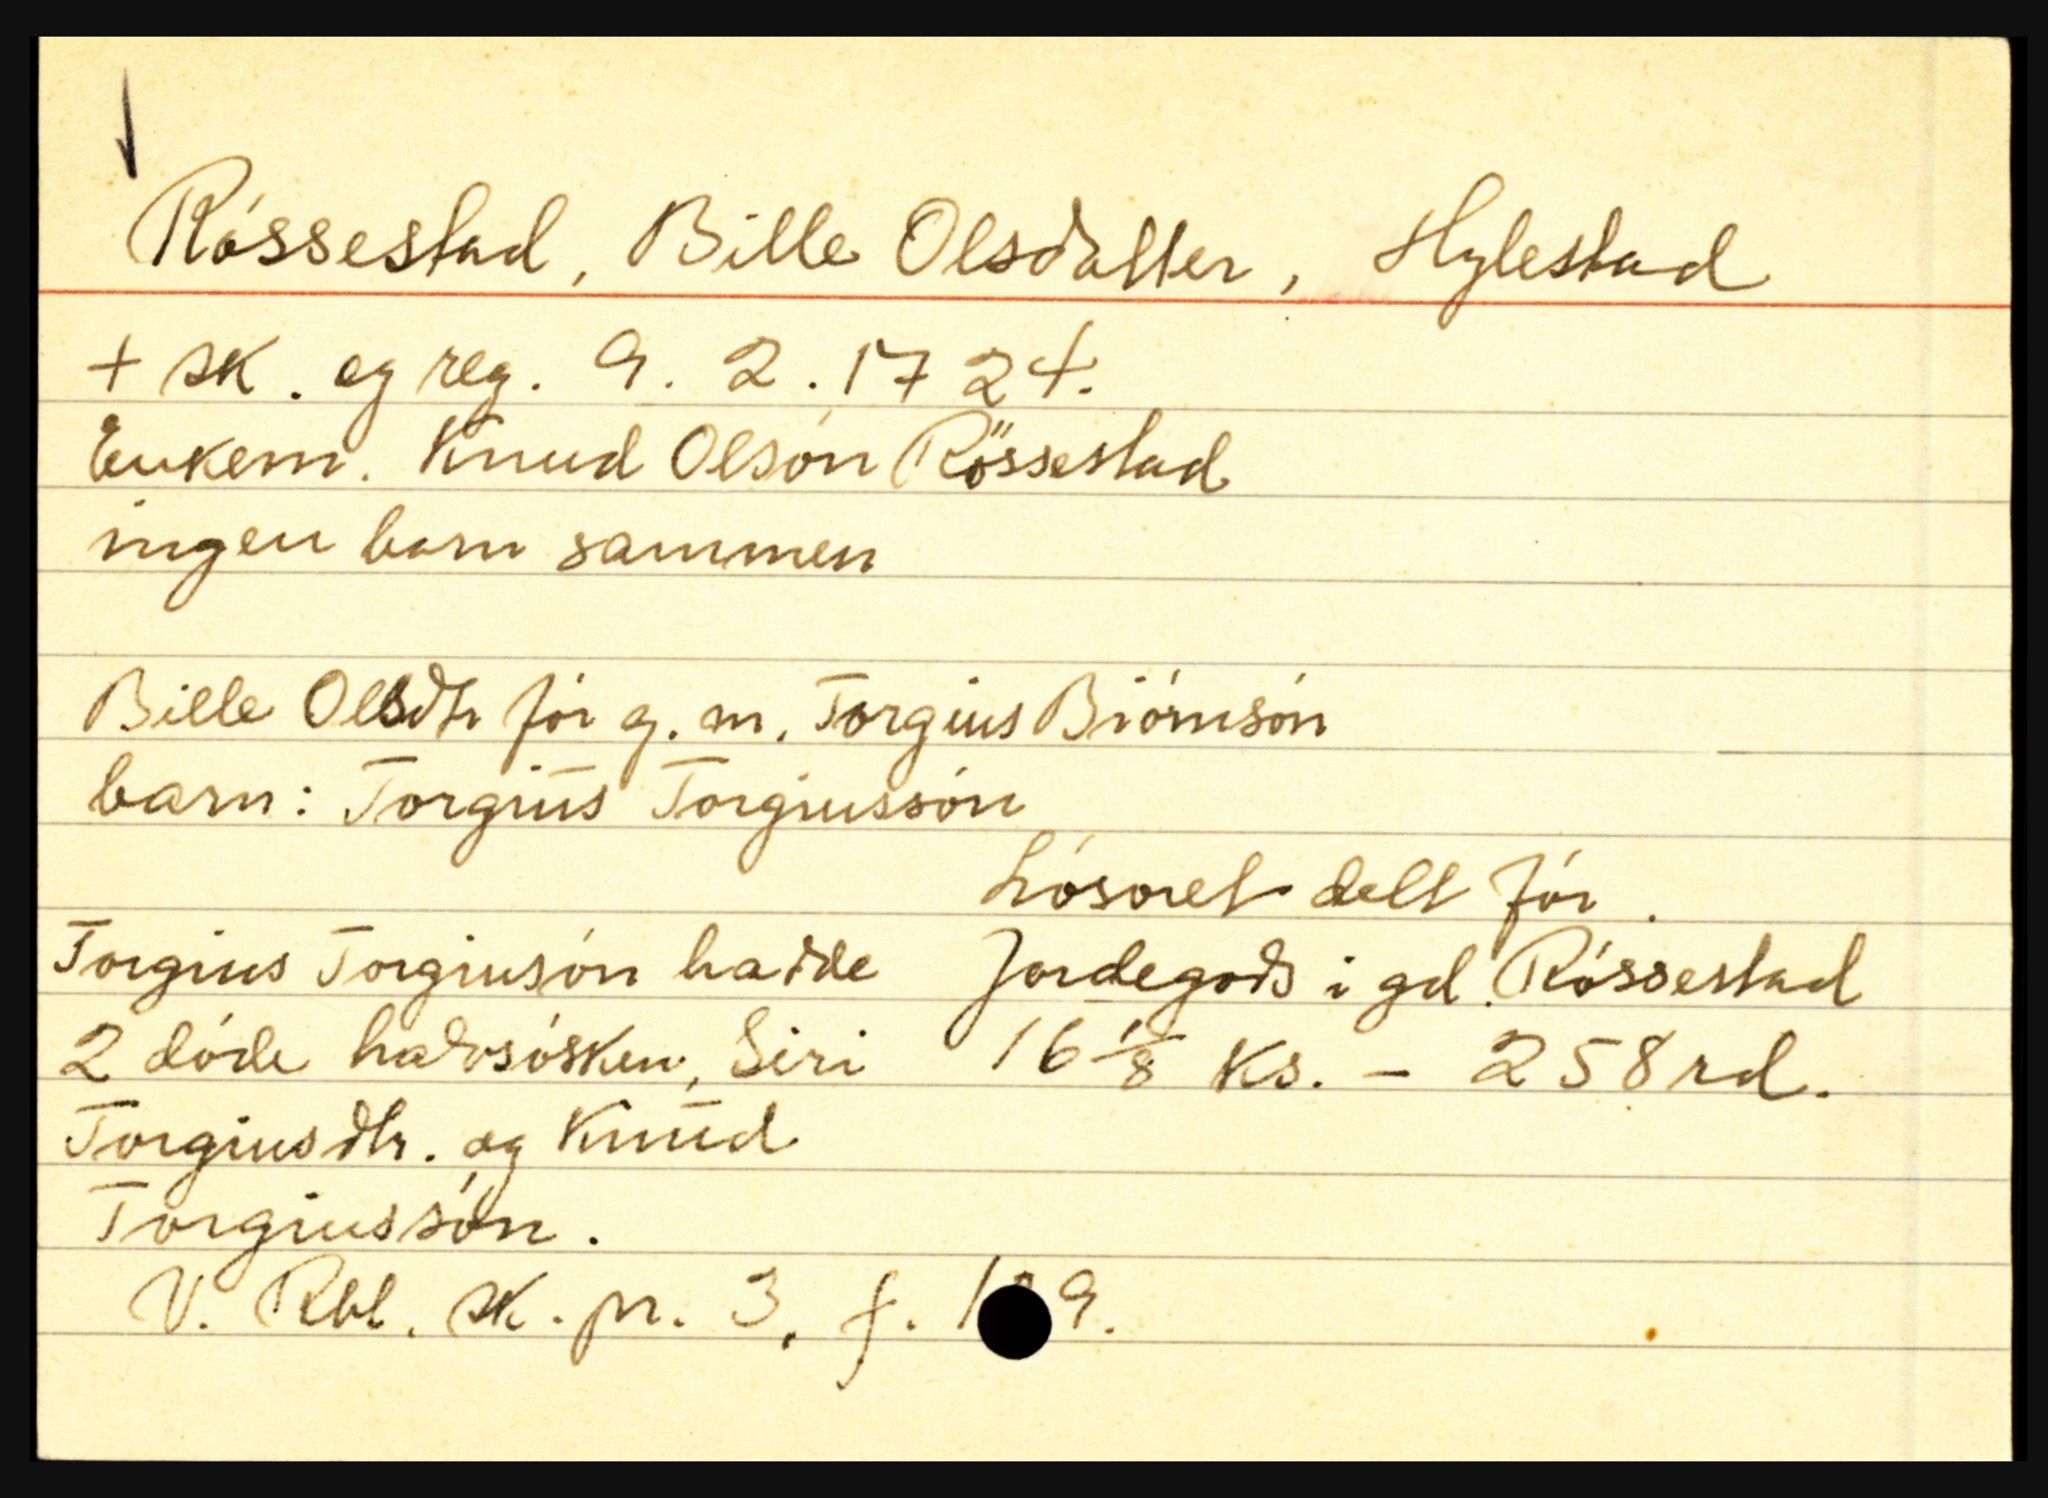 Róssestad, Bille Olsdatter, Hylestad
+ sk. og reg. 9. 2. 1724.
Enkem. Knud Olsón Rössestad
ingen barn sammen
Bille Olsdtr fór g. m. Torgius Biórnsón
barn: Torgius Torgiussón
Lósöret delt fór.
Torgius Torgiusón hadde
2 dóde halvsósken, Siri
Torgiusdtr. og Knud
Torgiussón.
Jordegods i gd. Róssestad
16 1/8 ks. - 258 rd.
V. Rbl. sk. pr. 3, f.